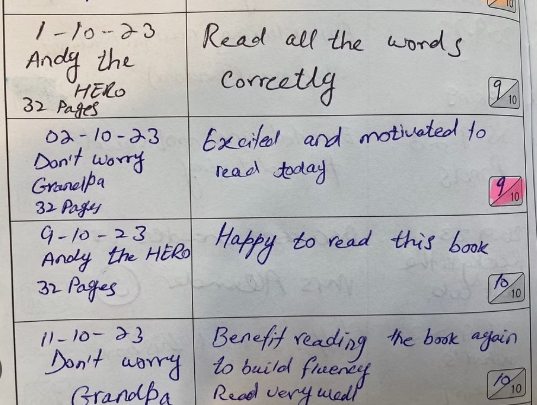 10
1-10-23
Andy the
HERO
32 Pages
Read all the words
Correctly
9/10
02-10-23
Don't worry
Grandpa
32 Pages
Excited and motivated to
read today
9/10
9-10-23
Andy the HERO
32 Pages
Happy to read this book
10/10
11-10-23
Don't worry
Grandpa
Benefit reading the book again
to build fluency
Read very well
10/10